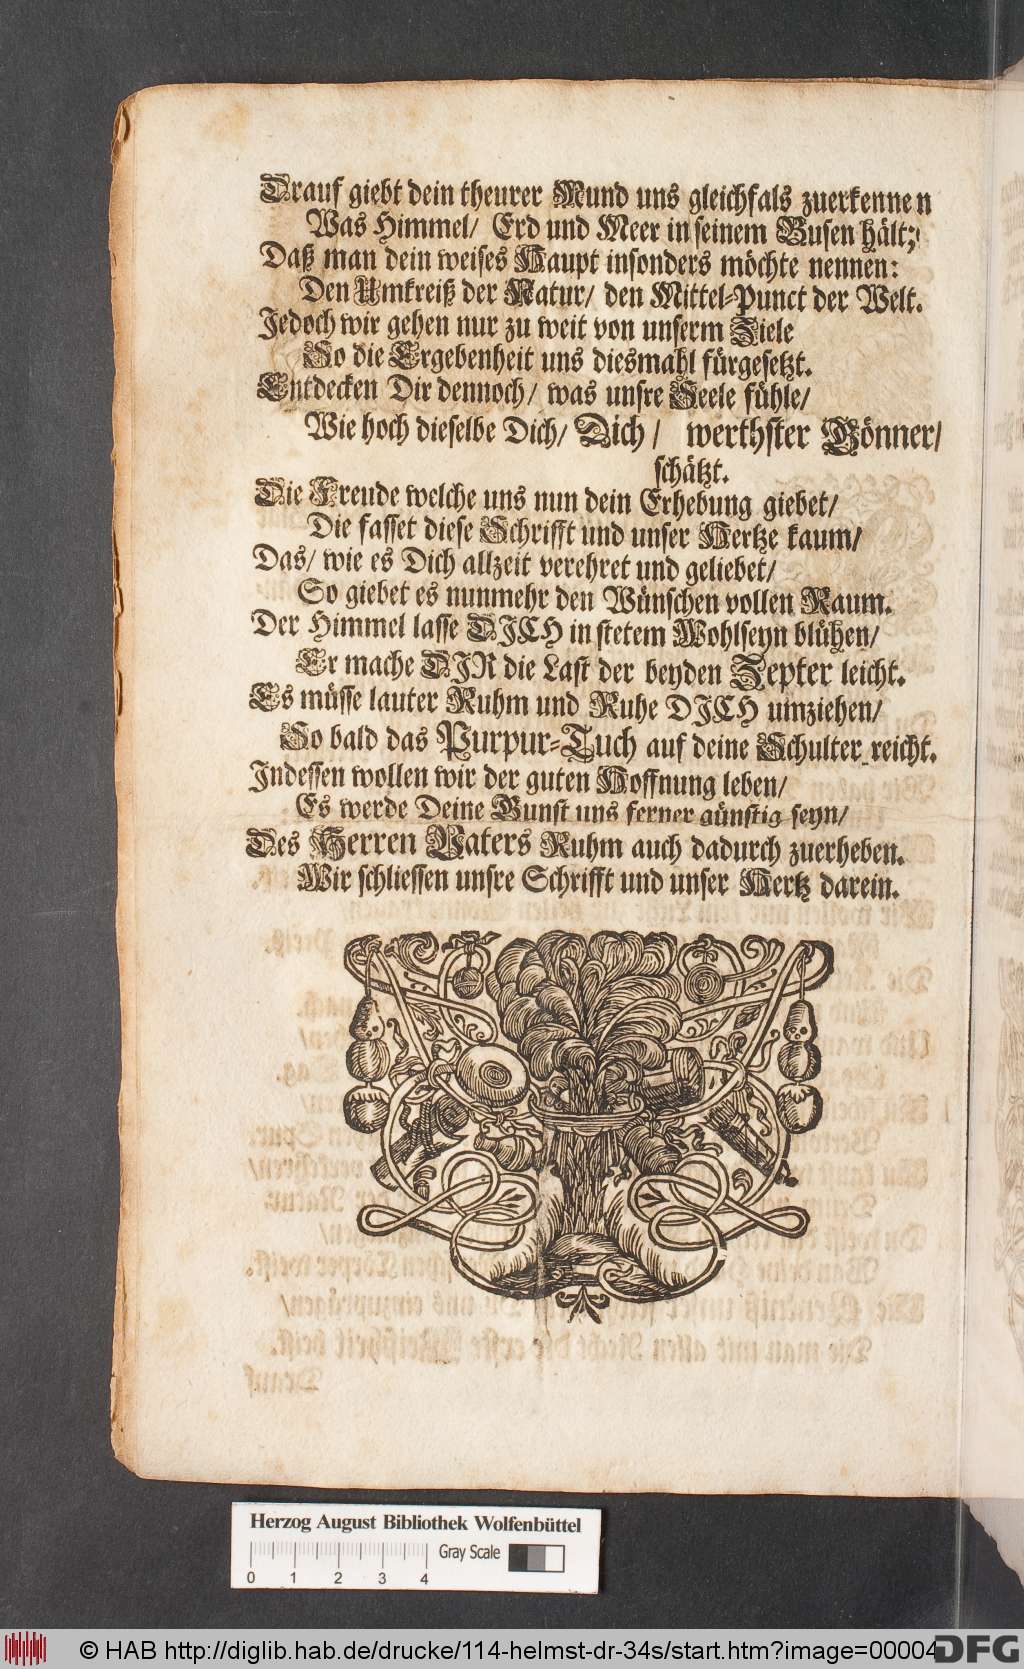 Drauf giebt dein theurer Mund uns gleichfals zuerkennen
Was Himmel/ Erd und Meer in seinem Busen hält;
Daß man dein weises Haupt insonders möchte nennen:
Den Umkreiß der Natur/ den Mittel-Punct der Welt.
Jedoch wir gehen nur zu weit von unserm Ziele
So die Ergebenheit uns diesmahl fürgesetzt.
Entdecken Dir dennoch/ was unsre Seele fühle/
Wie hoch dieselbe Dich/ Dich/ werthster Gönner/
schätzt.
Die Freude welche uns nun dein Erhebung giebet/
Die fasset diese Schrifft und unser Hertze kaum/
Das/ wie es Dich allzeit verehret und geliebet/
So giebet es nunmehr den Wünschen vollen Raum.
Der Himmel lasse DICH in stetem Wohlseyn blühen/
Er mache DIR die Last der beyden Zepter leicht.
Es müsse lauter Ruhm und Ruhe DICH umziehen/
So bald das Purpur-Tuch auf deine Schulter reicht.
Indessen wollen wir der guten Hoffnung leben/
Es werde Deine Gunst uns ferner günstig seyn/
Des Herren Vaters Ruhm auch dadurch zuerheben.
Wir schliessen unsre Schrifft und unser Hertz darein.
Herzog August Bibliothek Wolfenbüttel
Gray Scale
0 1 2 3 4
© HAB http://diglib.hab.de/drucke/114-helmst-dr-34s/start.htm?image=00004
DFG